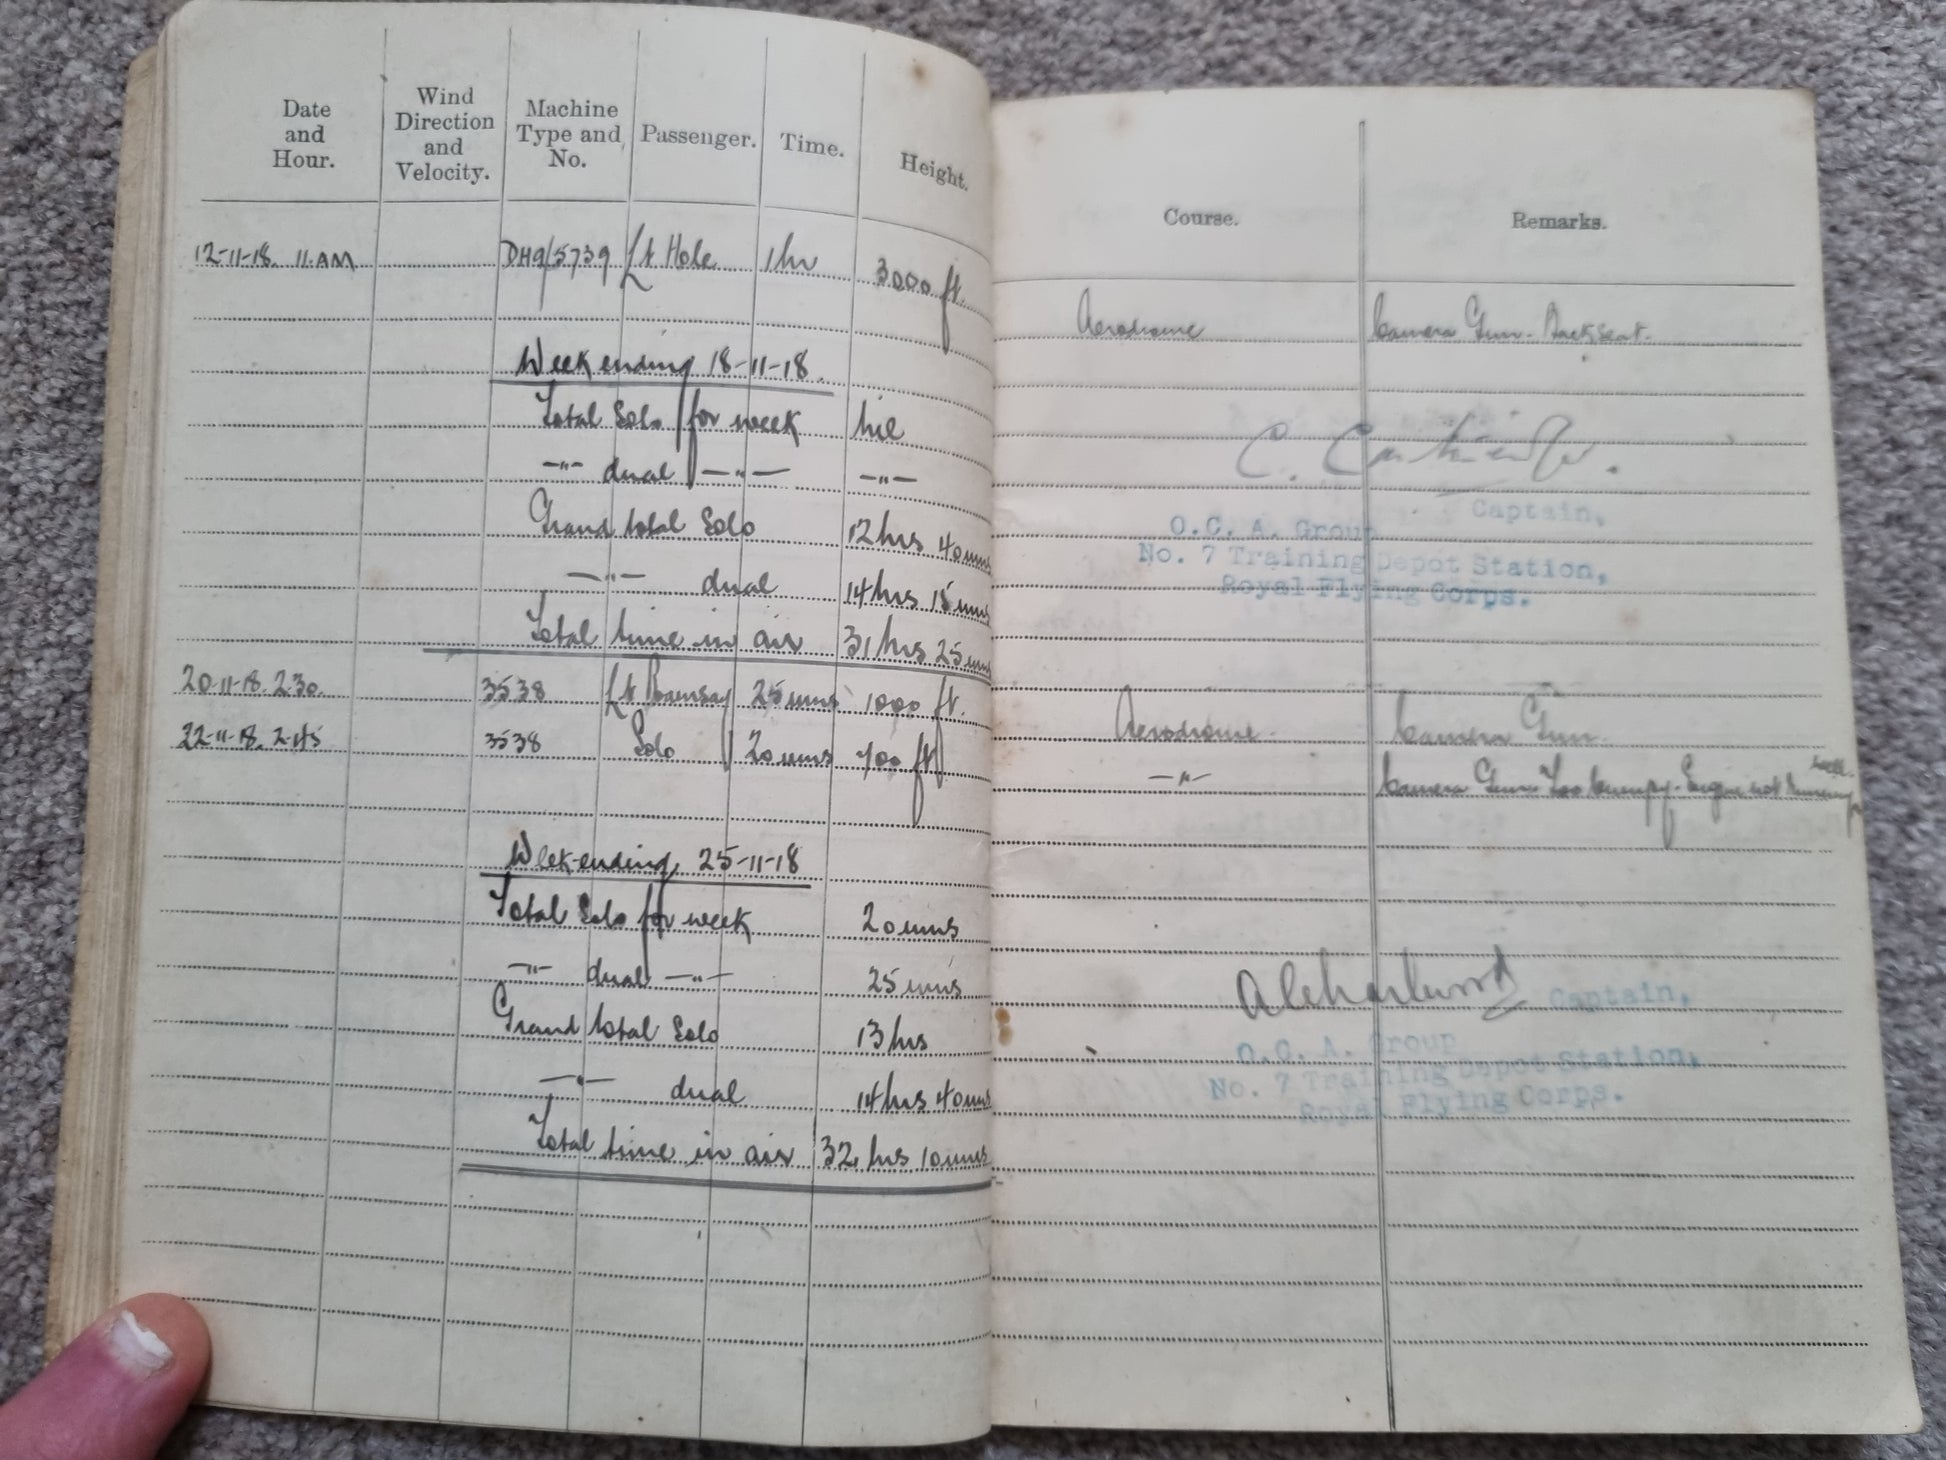 Date and Hour.
Wind Direction and Velocity.
Machine Type and No.
Passenger.
Time.
Height.
Course.
Remarks.
12-11-18. 11.AM DH9/5739 Lt Hole 1 hr 3000 ft. Aerodrome Camera Gun - Back seat.
Week ending 18-11-18.
Total Solo for week nil
—"— dual —"— —"—
Grand total Solo 12 hrs 40 mns
—"— dual 14 hrs 15 mns
Total time in air 31 hrs 25 mns
C.
Captain,
O.C. A. Group
No. 7 Training Depot Station,
Royal Flying Corps.
20-11-18. 2.30. 3538 Lt Ramsay 25 mns 1000 ft. Aerodrome. Camera Gun.
22-11-18. 2.45 3538 Solo 20 mns 700 ft —"— Camera Gun. Too bumpy. Engine not running well.
Week-ending 25-11-18
Total Solo for week 20 mns
—"— dual —"— 25 mns
Grand total Solo 13 hrs
—"— dual 14 hrs 40 mns
Total time in air 32 hrs 10 mns
Captain,
O.C. A. Group
No. 7 Training Depot Station,
Royal Flying Corps.